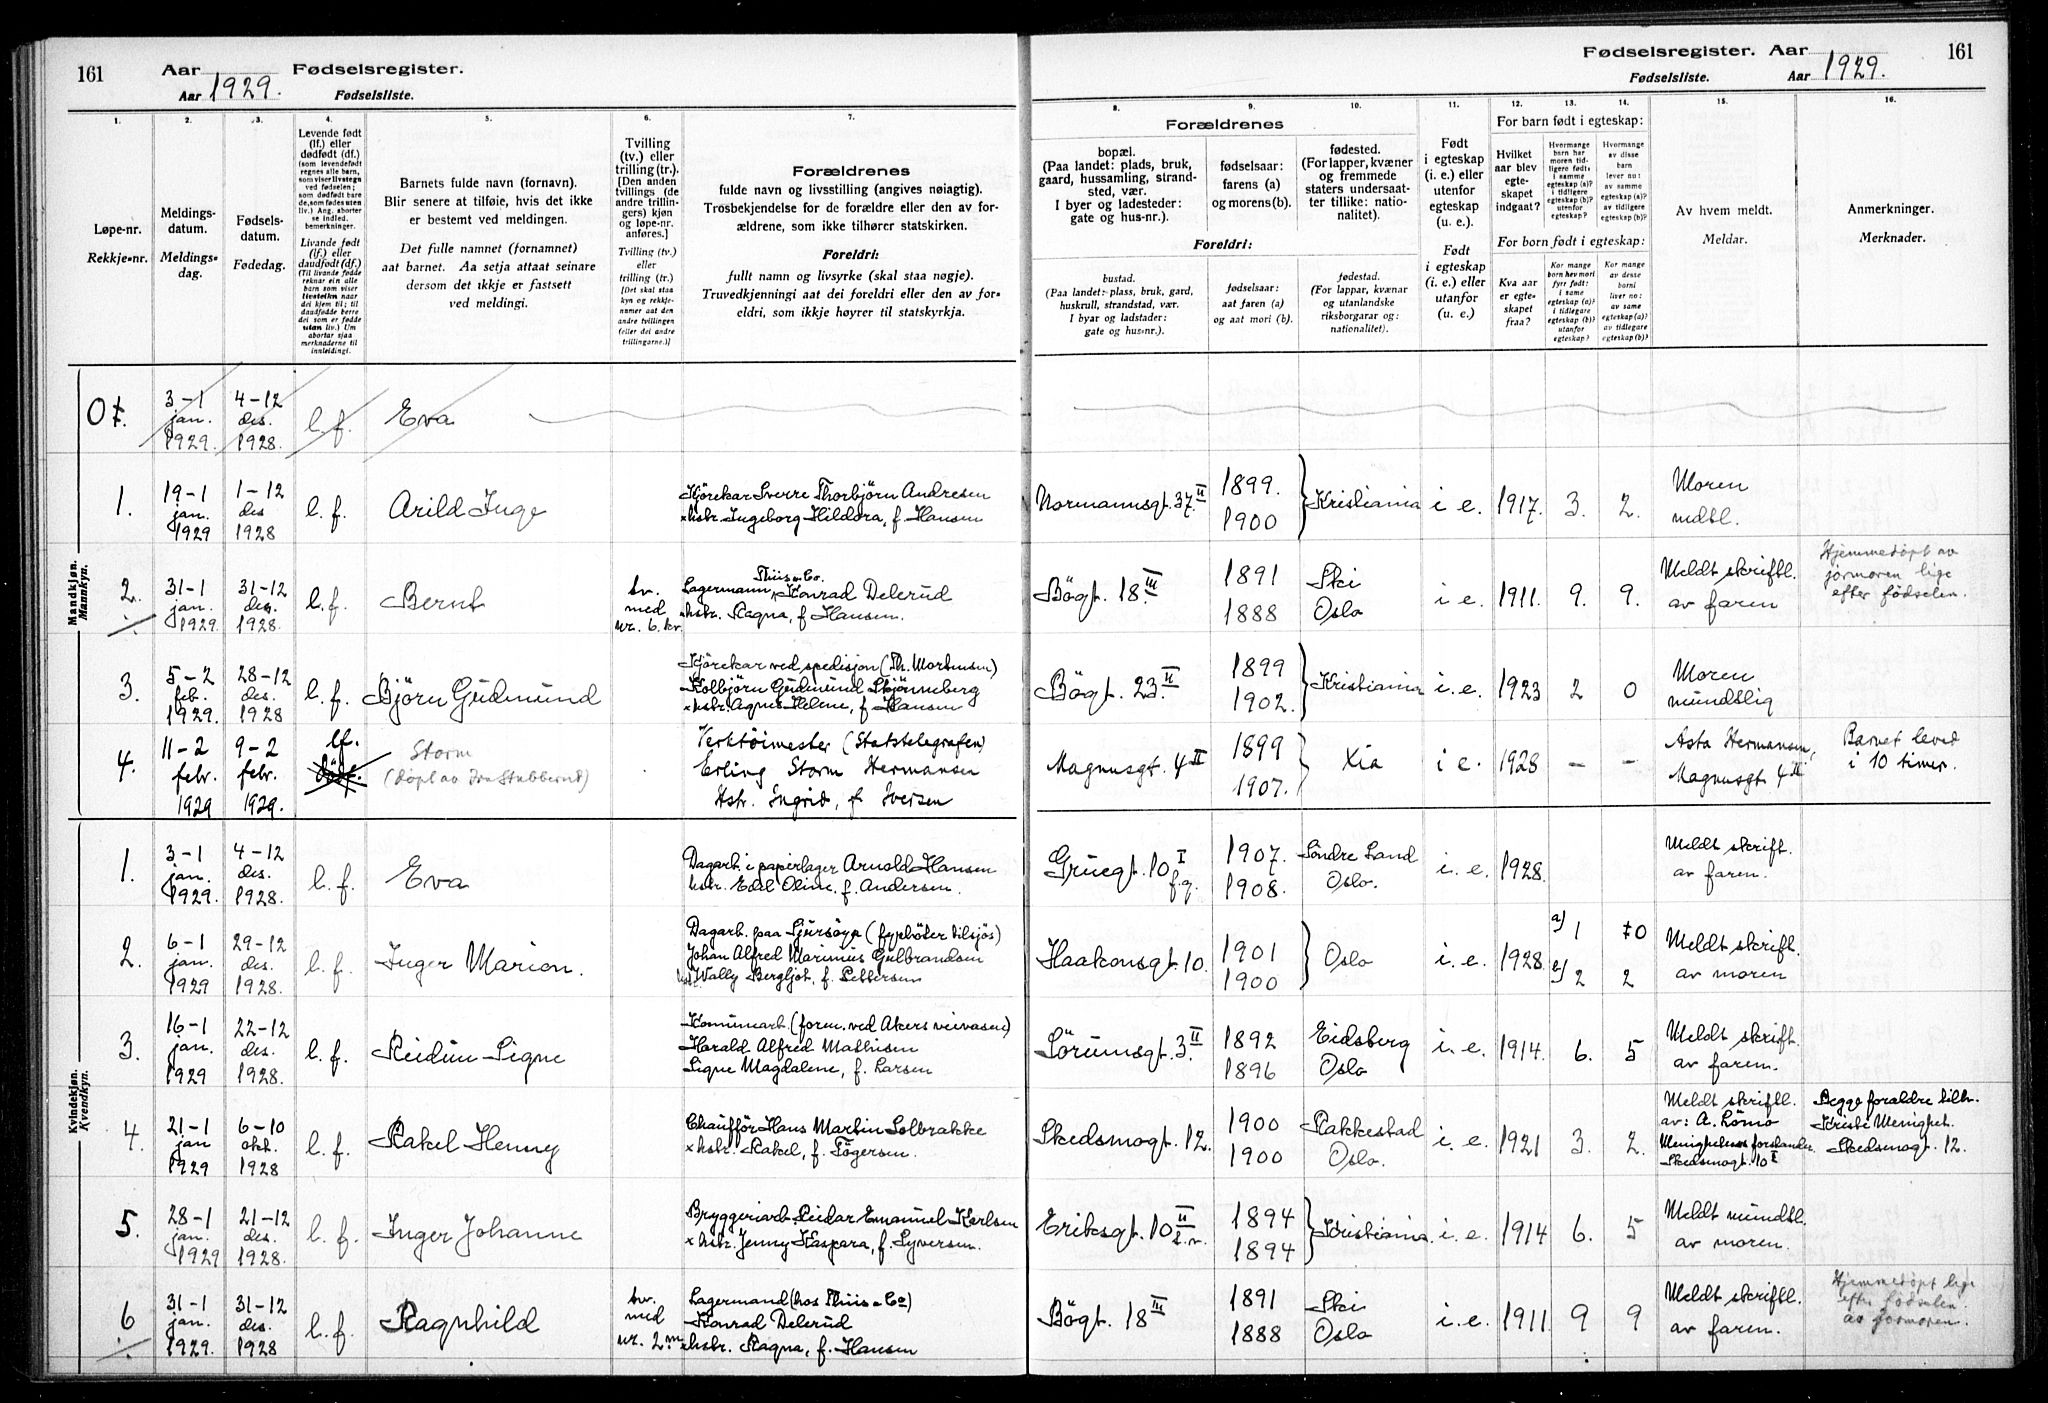 161 Aar 1929. Fødselsregister.
Aar Fødselsliste.
Fødselsregister. Aar 1929. 161
Fødselsliste. Aar
1. 2. 3. 4. 5. 6. 7.
Løpe-nr.
Rekkje-nr.
Meldings-
datum.
Meldings-
dag.
Fødsels-
datum.
Fødedag.
Levende født
(lf.) eller
dødfødt (df.)
(som levendefødt
regnes alle barn,
som viser livstegn
ved fødselen;
som dødfødt bare
de, som fødes uten
liv.) Ang. aborter
se indled.
bemerkninger.
Livande født
(lf.) eller
daudfødt (df.)
(Til livande fødde
reknar ein alle
barn som viser
livsteikn naar
dei kjem til; til
daudfødde berre
dei som er fødde
utan liv.) Um
abortar sjaa
merknaderne til
innleidingi.
Barnets fulde navn (fornavn).
Blir senere at tilføie, hvis det ikke
er bestemt ved meldingen.
Det fulle namnet (fornamnet)
aat barnet. Aa setja attaat seinare
dersom det ikkje er fastsett
ved meldingi.
Tvilling
(tv.) eller
trilling (tr.).
[Den anden
tvillings (de
andre trillin-
gers) kjøn
og løpe-nr.
anføres.]
Tvilling (tv.)
eller
trilling (tr.)
[Det skal staa
kyn og rekkje-
numer aat den
andre tvillingen
(eller dei andre
trillingarne.)]
Forældrenes
fulde navn og livsstilling (angives nøiagtig).
Trosbekjendelse for de forældre eller den av for-
ældrene, som ikke tilhører statskirken.
Foreldri:
fullt namn og livsyrke (skal staa nøgje).
Truvedkjenningi aat dei foreldri eller den av for-
eldri, som ikkje høyrer til statskyrkja.
8. 9. 10. 11. 12. 13. 14. 15. 16.
Forældrenes
bopæl.
(Paa landet: plads, bruk,
gaard, hussamling, strand-
sted, vær.
I byer og ladesteder:
gate og hus-nr.).
fødselsaar:
farens (a)
og morens (b).
fødested.
(For lapper, kvæner
og fremmede
staters undersaat-
ter tillike: natio-
nalitet).
Foreldri:
bustad.
(Paa landet: plass, bruk, gard,
huskrull, strandstad, vær.
I byar og ladstader:
gate og hus-nr.).
fødselsaar:
aat faren (a)
og aat mori (b).
fødestad.
(For lappar, kvænar
og utanlandske
riksborgarar og:
nationalitet).
Født
i egteskap
(i. e.) eller
utenfor
egteskap
(u. e.).
Født
i egteskap
(i. e.) eller
utanfor
(u. e.).
For barn født i egteskap:
Hvilket
aar blev
egte-
skapet
indgaat?
Hvormange
barn har
moren tid-
ligere født:
i samme
egteskap (a)?
i tidligere
egteskap (b)?
utenfor
egteskap?
Hvormange
av disse
barn
lever nu:
av samme
egteskap (a)?
av tidligere
egteskap (b)?
For born født i egteskap:
Kva aar
er egte-
skapet
fraa?
Kor mange
born hev mori
fyrr født:
i same
egteskap (a)?
i tidlegare
egteskap (b)?
utanfor
egteskap?
Kor mange
av desse
borni
liver no:
av same
egteskap (a)?
av tidlegare
egteskap (b)?
Av hvem meldt.
Meldar.
Anmerkninger.
Merknader.
Mandkjøn.
Mannkyn.
3-1 jan. 1929. 4-12 des. 1928. l. f. Eva
1. 19-1 jan. 1929 1-12 des 1928 l. f. Arild Inge
Kjørekar Sverre Thorbjørn Andresen
hstr. Ingeborg Hildora, f. Hansen
Normannsgt. 37 II 1899. 1900 Kristiania i e. 1917. 3. 2. Moren mdtl.
2. 31-1 jan. 1929. 31-12 des. 1928. l. f. Bernt tv. med nr. 6. kv.
Lagermann Thiis & Co. Konrad Delerud
hstr. Ragna, f. Hansen.
Bögt. 18 III 1891 1888 Ski Oslo i e. 1911. 9. 9. Meldt skriftl. av faren
Hjemmedøpt av
jormoren lige
efter fødselen.
3. 5-2 feb. 1929. 28-12 des. 1928 l. f. Björn Gudmund
Kjörekar ved spedisjon (Th. Mortensen)
Kolbjörn Gudmund Skjönneberg
hstr. Agnes Helene, f. Hansen
Bögt. 23 II 1899 1902. Kristiania i. e. 1923 2 0 Moren mündtlig
4. 11-2 febr. 1929 9-2 febr. 1929. lf. Storm
(døpt av Stubberud)
Verktøimester (Statstelegrafen)
Erling Storm Hermansen
Hstr. Ingrid, f. Iversen
Magnusgt. 4 II 1899 1907. Xia i e. 1928 - - Asta Hermansen, Magnusgt 4 II
Barnet leved
i 10 timer.
Kvindekjøn.
Kvendkyn.
1. 3-1 jan. 1929. 4-12 des. 1928. l. f. Eva
Dagarb. i papirlager Arnold Hansen
hstr. Edel Oline, f. Andersen.
Gruegt. 10 I f.g. 1907. 1908. Söndre Land Oslo. i. e. 1928. Meldt skrift. av faren.
2. 6-1 jan. 1929 29-12 des. 1928. l. f. Inger Marion.
Dagarb. paa Sjursöya (fyrböter tilsjös)
Johan Alfred Marinius Gulbrandsen
Wally Bergljot, f. Pettersen
Haakonsgt. 10. 1901 1900 Oslo i. e. 1928 a) 1 2 0 2 Meldt skrift. av moren
3. 16-1 jan. 1929 22-12 des. 1928. l. f. Reidun Signe
Komunearb. (form. ved Akers veivæsen)
Harald Alfred Mathisen
Signe Magdalene, f. Larsen
Sörumsgt. 3 II 1892 1896 Eidsberg Oslo i. e. 1914. 6. 5 Meldt skrift. av faren.
4. 21-1 jan 1929 6-10 okt. 1928 l. f. Rakel Henny
Chaufför Hans Martin Solbrække
hstr. Rakel, f. Fögersen.
Skedsmogt. 12. 1900 1900 Rakkestad Oslo. i. e. 1921 3. 2. Meldt skriftl.
av: A. Römo
Menighetens forstander.
Skedsmogt. 10 I
Begge forældre tilh.
Kristi Menighet.
Skedsmogt. 12.
5. 28-1 jan. 1929 21-12 des. 1928. l. f. Inger Johanne
Bryggeriarb. Reidar Emanuel Karlsen
hstr. Jenny Kaspara, f. Syversen.
Eriksgt. 10 II 1894 1894 Kristiania i. e. 1914 6. 5 Meldt mündtl. av moren.
6 31-1 jan. 1929. 31-12 des. 1928 l. f. Ragnhild tv. med nr. 2. m
Lagermand (hos Thiis & Co)
Konrad Delerud
hstr. Ragna, f. Hansen
Bögt. 18 III 1891 1888 Ski Oslo i. e. 1911 9 9 Meldt skriftl. av faren.
Hjemmedøpt lige
efter fødselen.
av jormoren.